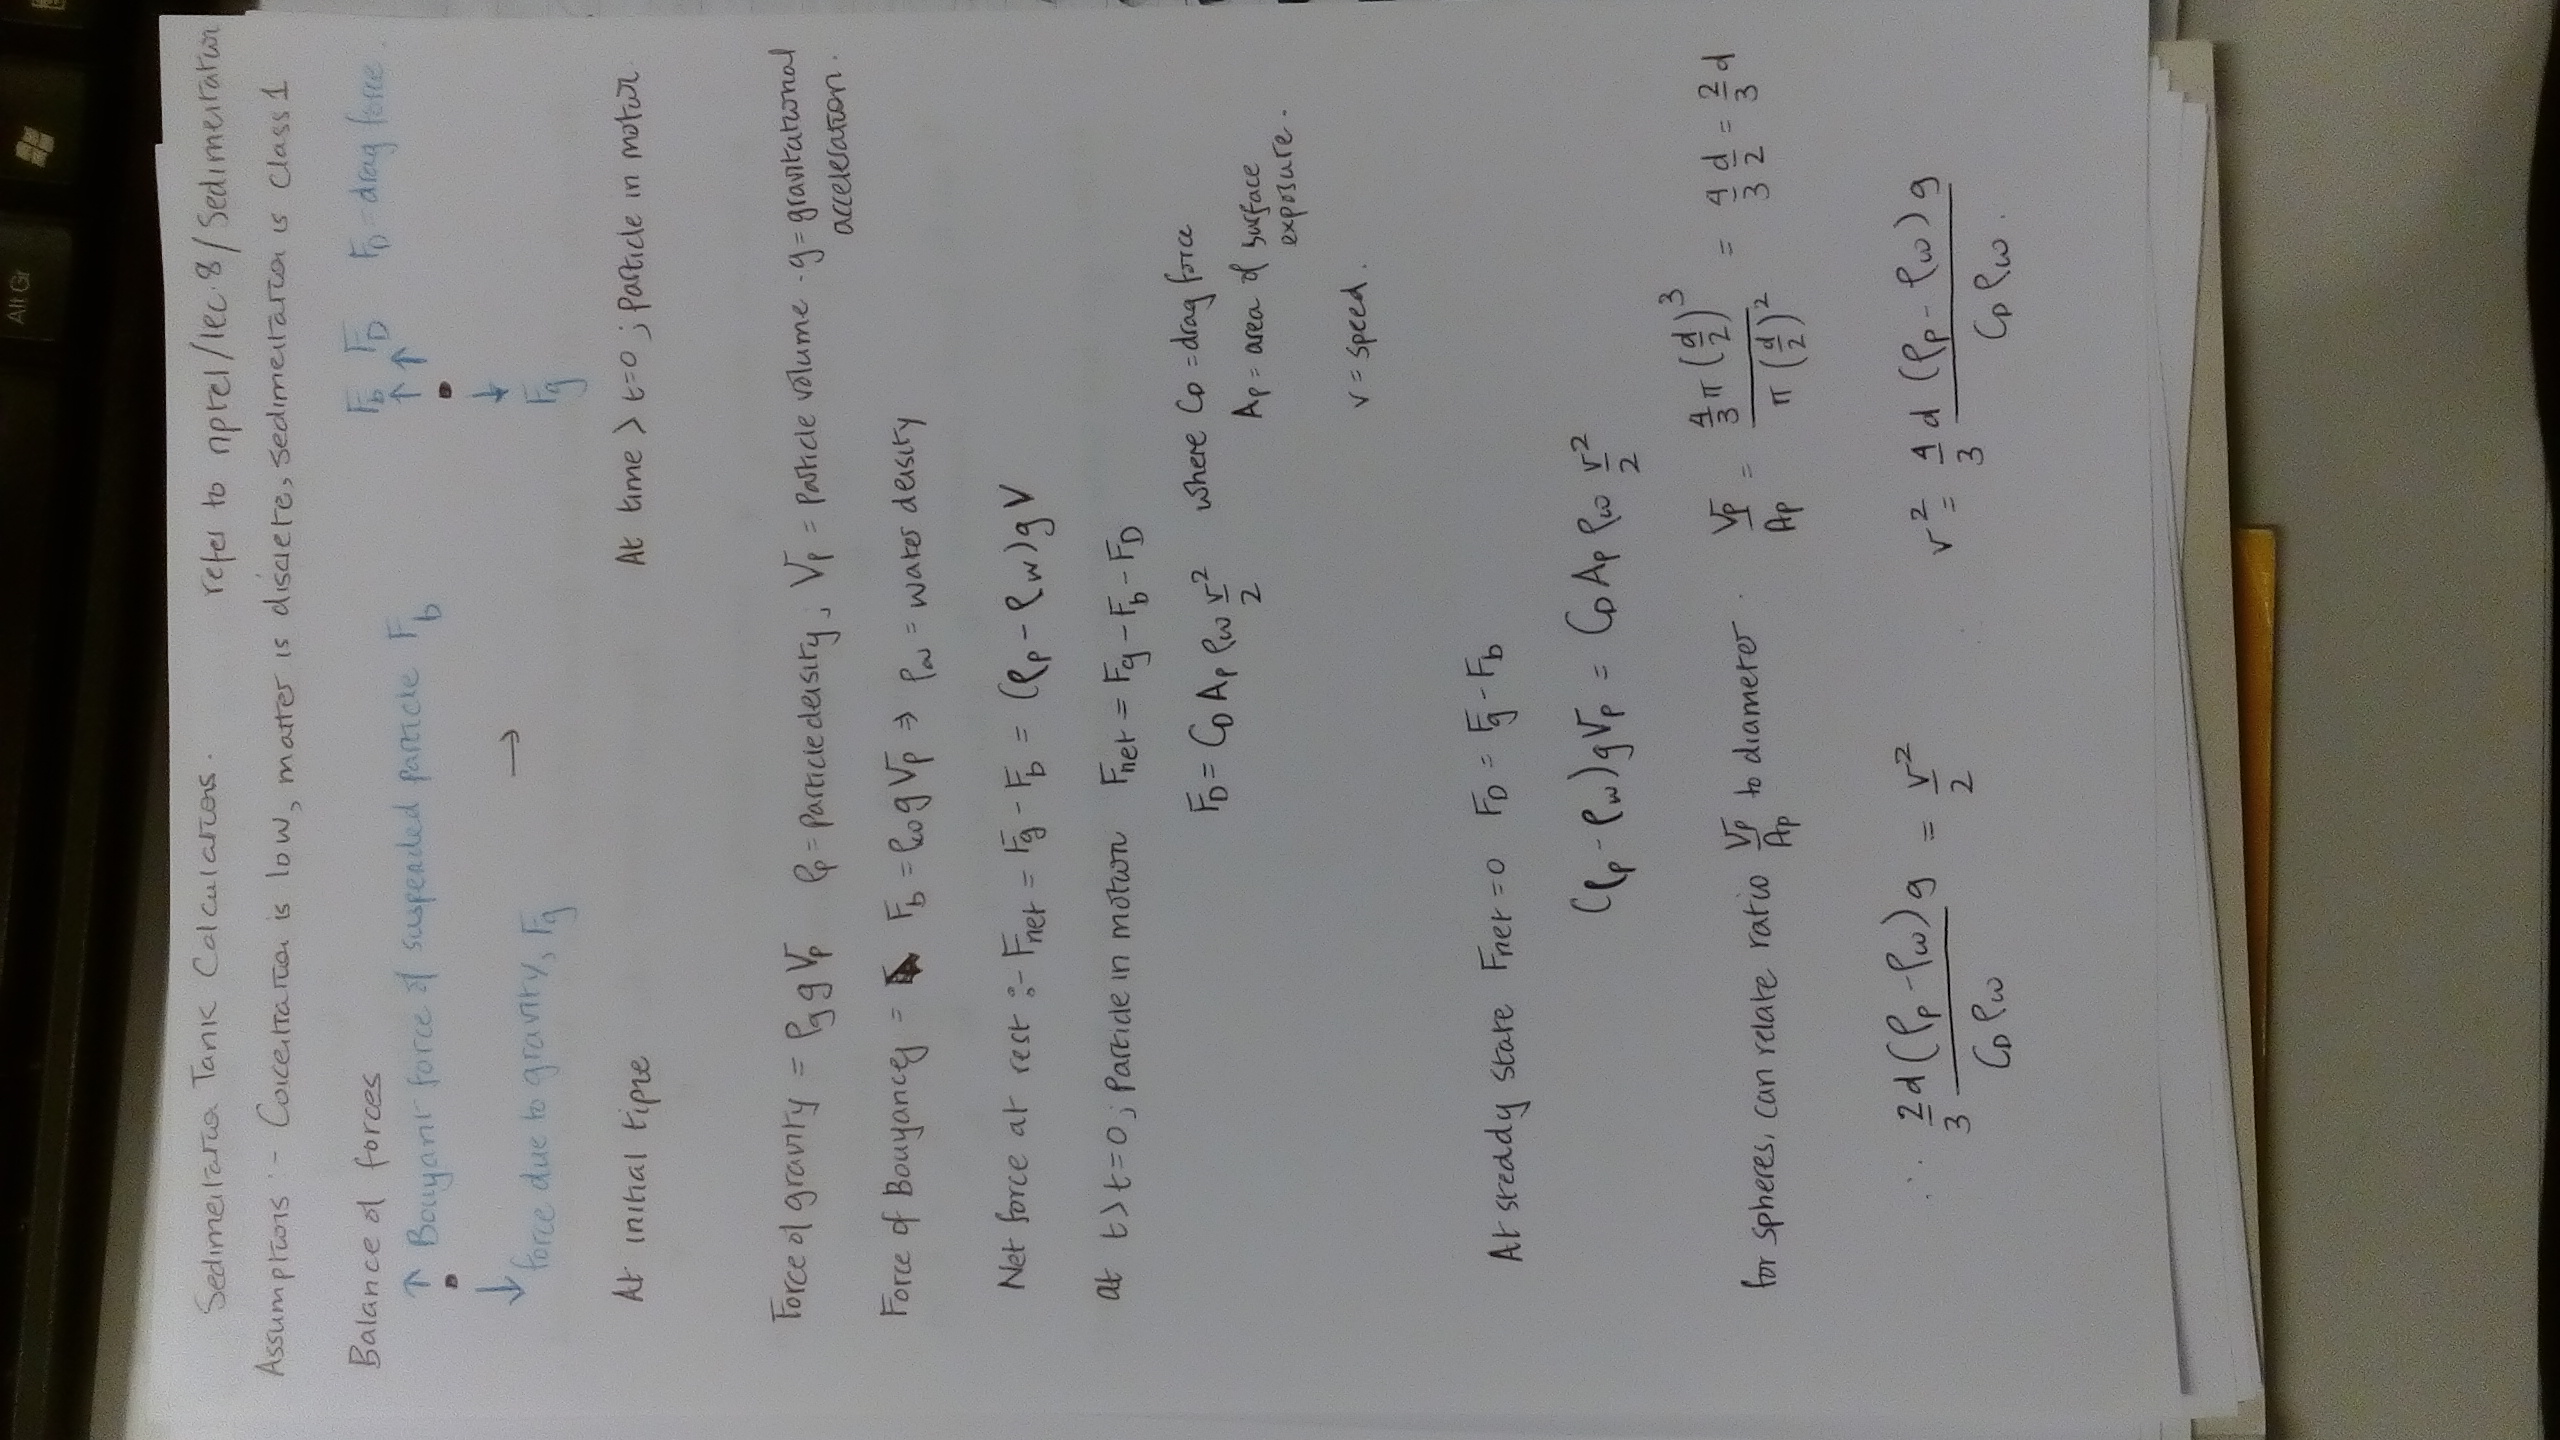 Sedimentation Tank Calculations. refer to nptel/lec.8/Sedimentation
Assumptions :- Concentration is low, matter is discrete, sedimentation is class 1
Balance of forces
↑ Bouyant force of suspended particle F_b
↓ force due to gravity, F_g
→
F_b F_D F_D = drag force.
↑ ↑
↓
F_g
At initial time
At time > t=0 ; particle in motion.
Force of gravity = ρ_g g V_p ρ_p = particle density, V_p = particle volume . g = gravitational acceleration.
Force of Bouyancy = F_b = ρ_w g V_p ⇒ ρ_w = water density
Net force at rest :- F_net = F_g - F_b = (ρ_p - ρ_w) g V
at t > t=0 ; particle in motion F_net = F_g - F_b - F_D
F_D = C_D A_p ρ_w v²/2 where C_D = drag force
A_p = area of surface exposure.
v = speed.
At steady state F_net = 0 F_D = F_g - F_b
(ρ_p - ρ_w) g V_p = C_D A_p ρ_w v²/2
for spheres, can relate ratio V_p/A_p to diameter. V_p/A_p = 4/3 π (d/2)³ / π (d/2)² = 4/3 d/2 = 2/3 d
∴ 2/3 d (ρ_p - ρ_w) g / C_D ρ_w = v²/2 v² = 4/3 d (ρ_p - ρ_w) g / C_D ρ_w.
Alt Gr